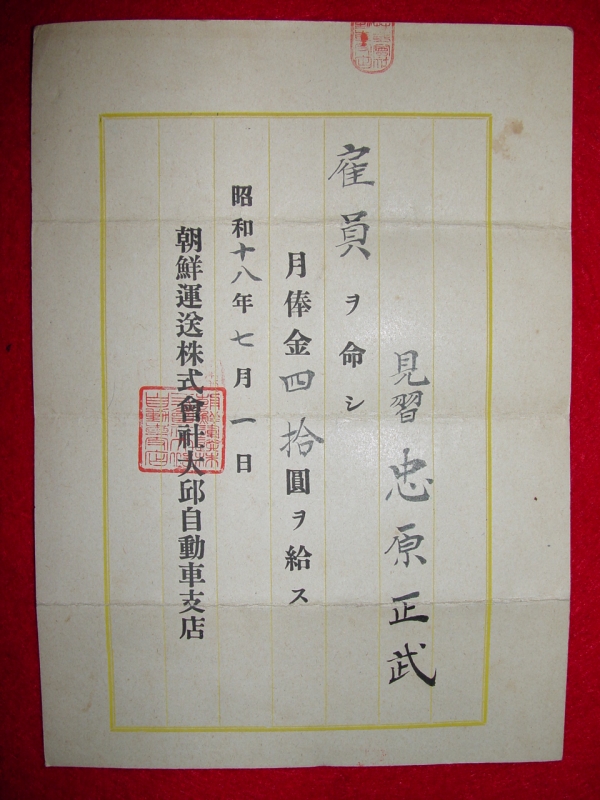 見習 忠原正武
雇員ヲ命シ
月俸金四拾圓ヲ給ス
昭和十八年七月一日
朝鮮運送株式會社大邱自動車支店